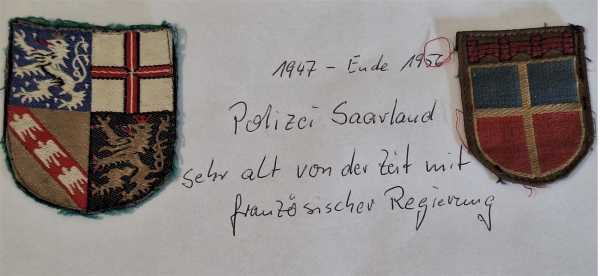 1947 - Ende 1956
Polizei Saarland
sehr alt von der Zeit mit
französischer Regierung